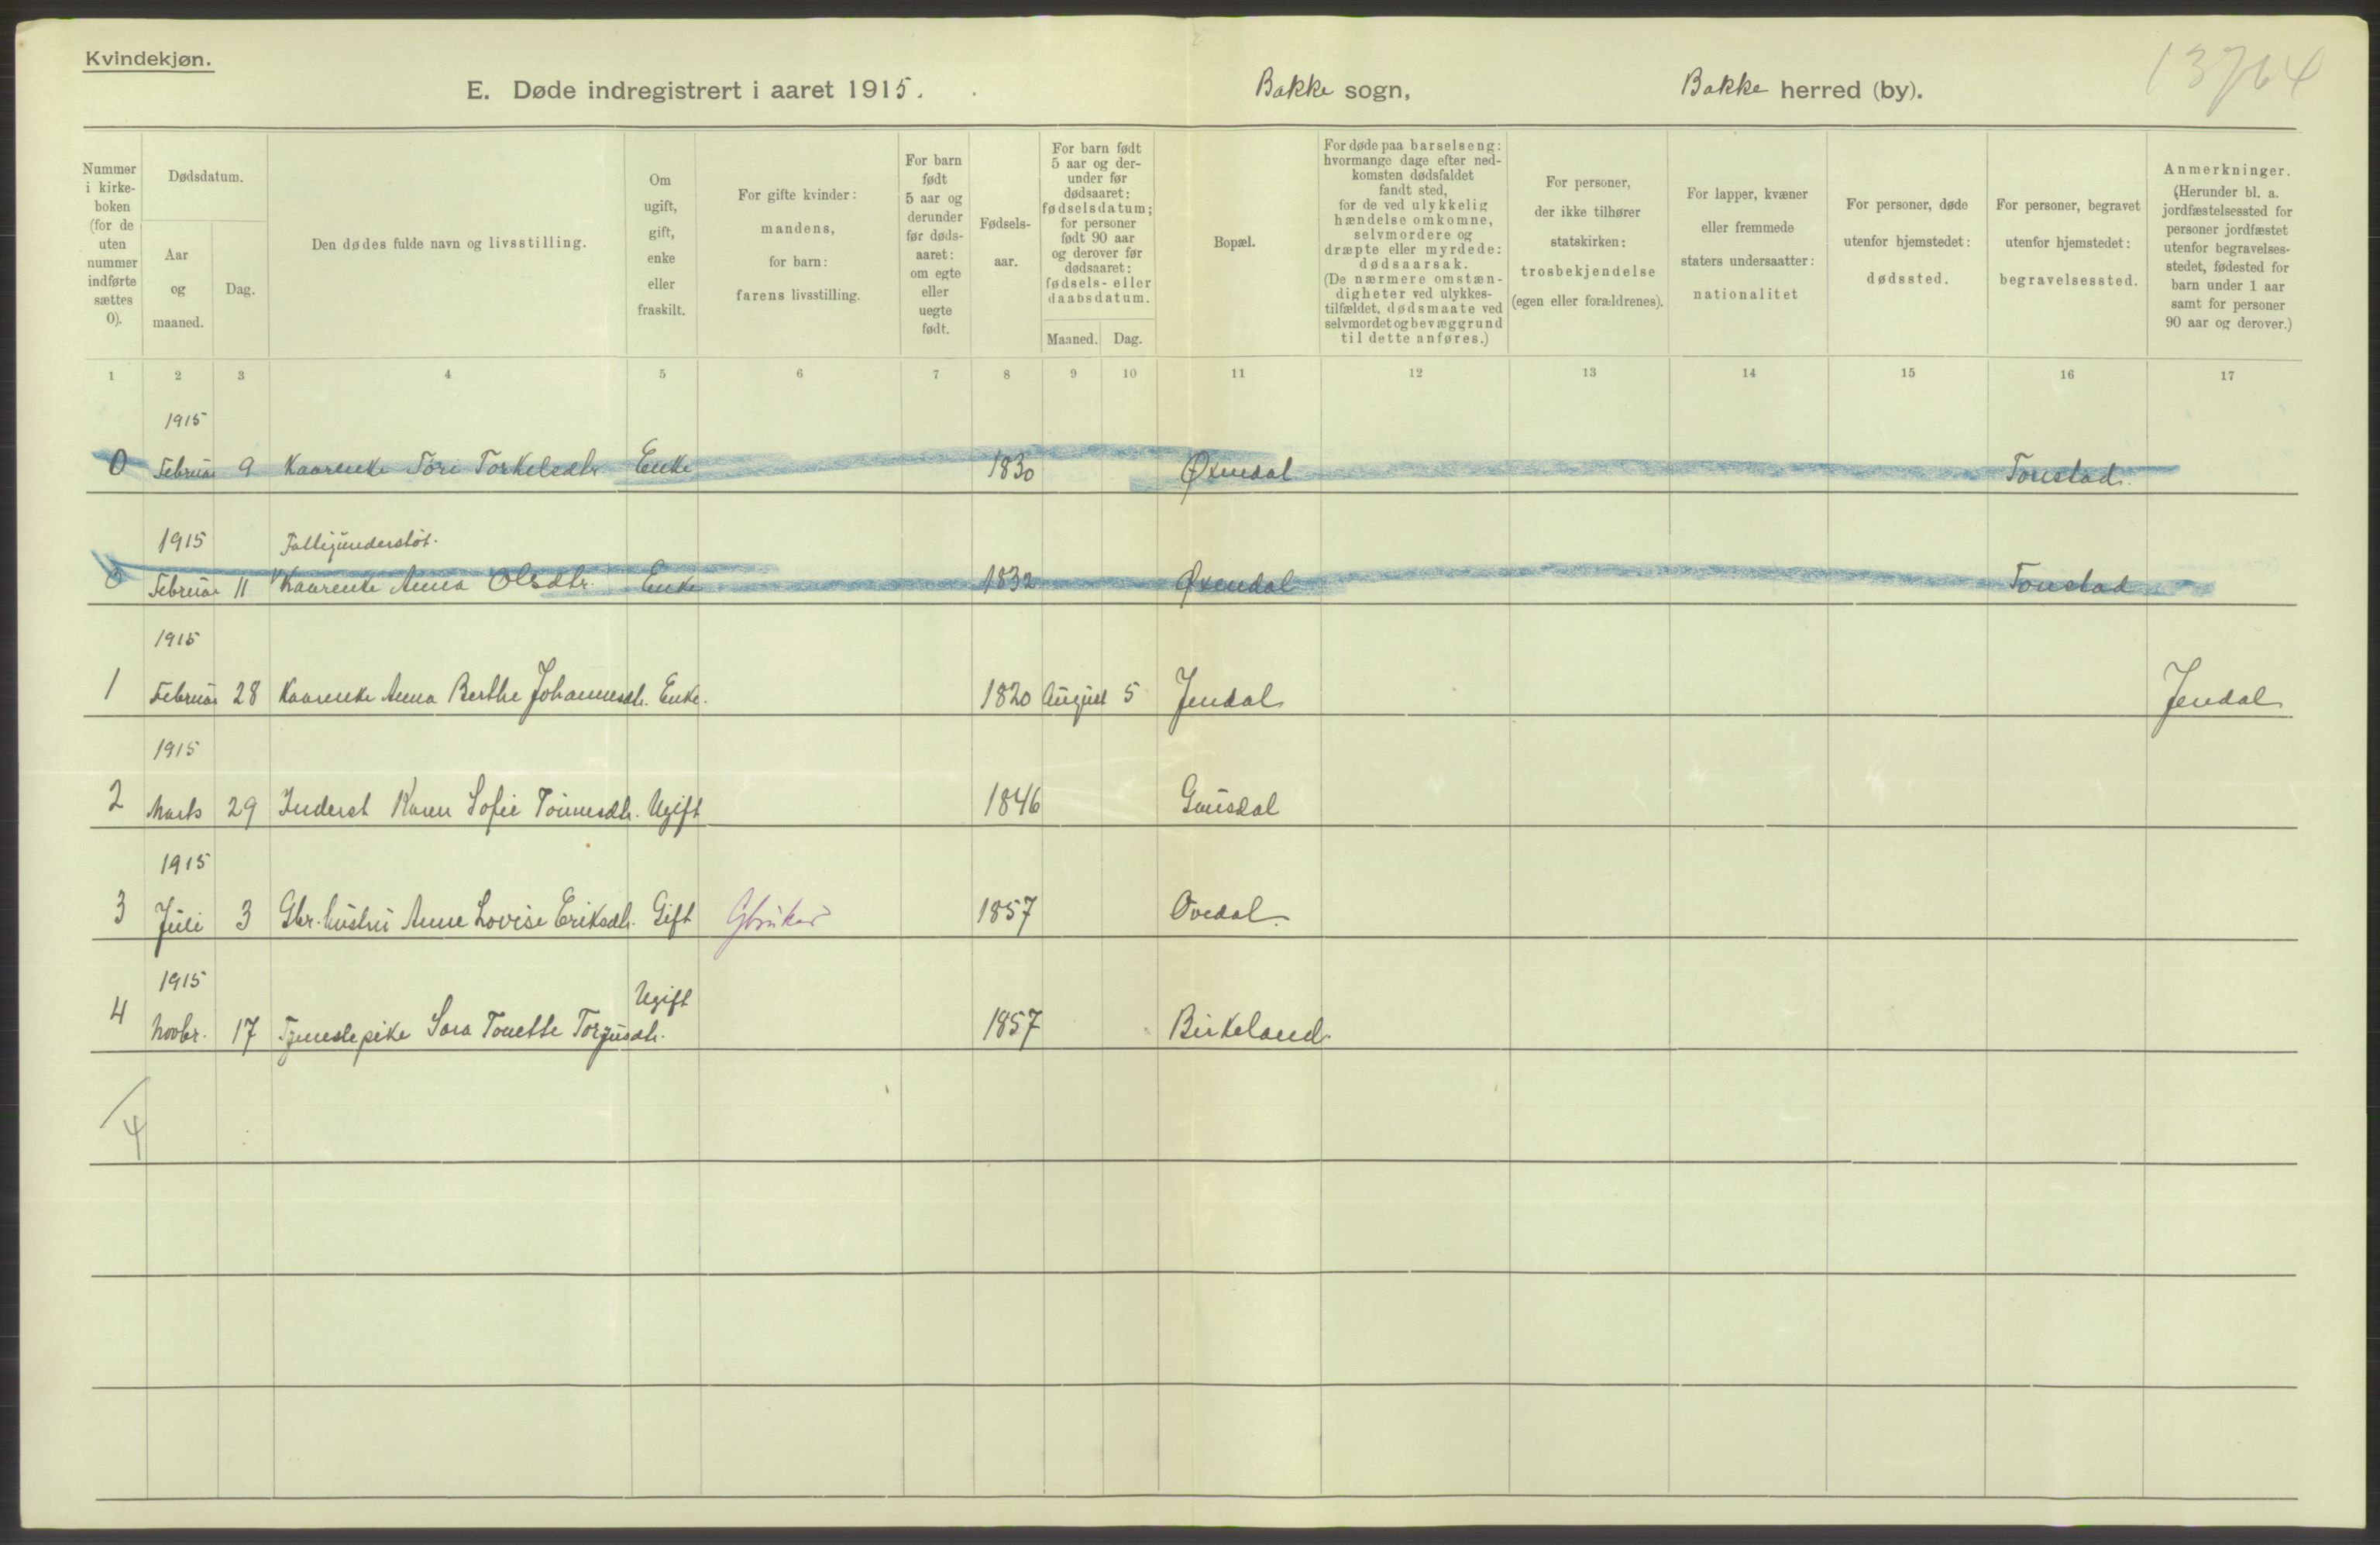 Kvindekjøn.
13764
E. Døde indregistrert i aaret 1915. Bakke sogn, Bakke herred (by).
Nummer i kirke- boken (for de uten nummer indførte sættes 0).
Dødsdatum.
Aar og maaned.
Dag.
Den dødes fulde navn og livsstilling.
Om ugift, gift, enke eller fraskilt.
For gifte kvinder: mandens, for barn: farens livsstilling.
For barn født 5 aar og derunder før døds- aaret: om egte eller uegte født.
Fødsels- aar.
For barn født 5 aar og der- under før dødsaaret: fødselsdatum; for personer født 90 aar og derover før dødsaaret: fødsels- eller daabsdatum.
Maaned. Dag.
Bopæl.
For døde paa barselseng: hvormange dage efter ned- komsten dødsfaldet fandt sted, for de ved ulykkelig hændelse omkomne, selvmordere og dræpte eller myrdede: dødsaarsak. (De nærmere omstæn- digheter ved ulykkes- tilfældet, dødsmaate ved selvmordet og bevæggrund til dette anføres.)
For personer, der ikke tilhører statskirken: trosbekjendelse (egen eller forældrenes).
For lapper, kvæner eller fremmede staters undersaatter: nationalitet
For personer, døde utenfor hjemstedet: dødssted.
For personer, begravet utenfor hjemstedet: begravelsessted.
Anmerkninger. (Herunder bl. a. jordfæstelsessted for personer jordfæstet utenfor begravelses- stedet, fødested for barn under 1 aar samt for personer 90 aar og derover.)
1 2 3 4 5 6 7 8 9 10 11 12 13 14 15 16 17
1915
0 Februar 9 Kaarenke Tori Torkelsdtr. Enke 1830 Øxendal Tonstad.
1915 Fattigunderstøt.
0 Februar 11 Kaarenke Anna Olsdtr. Enke 1832 Øxendal Tonstad
1915
1 Februar 28 Kaarenke Anna Berthe Johannesdtr. Enke. 1820 August 5 Jendal Jendal
1915
2 Marts 29 Inderst Karen Sofie Tønnesdtr. Ugift 1846 Gausdal
1915
3 Juli 3 Gbr. hustru Anne Lovise Eriksdtr. Gift Gbruker 1857 Ovedal.
1915 Ugift
4 Novbr. 17 Tjenestepike Sara Tonette Torjusdtr. 1857 Birkeland.
4